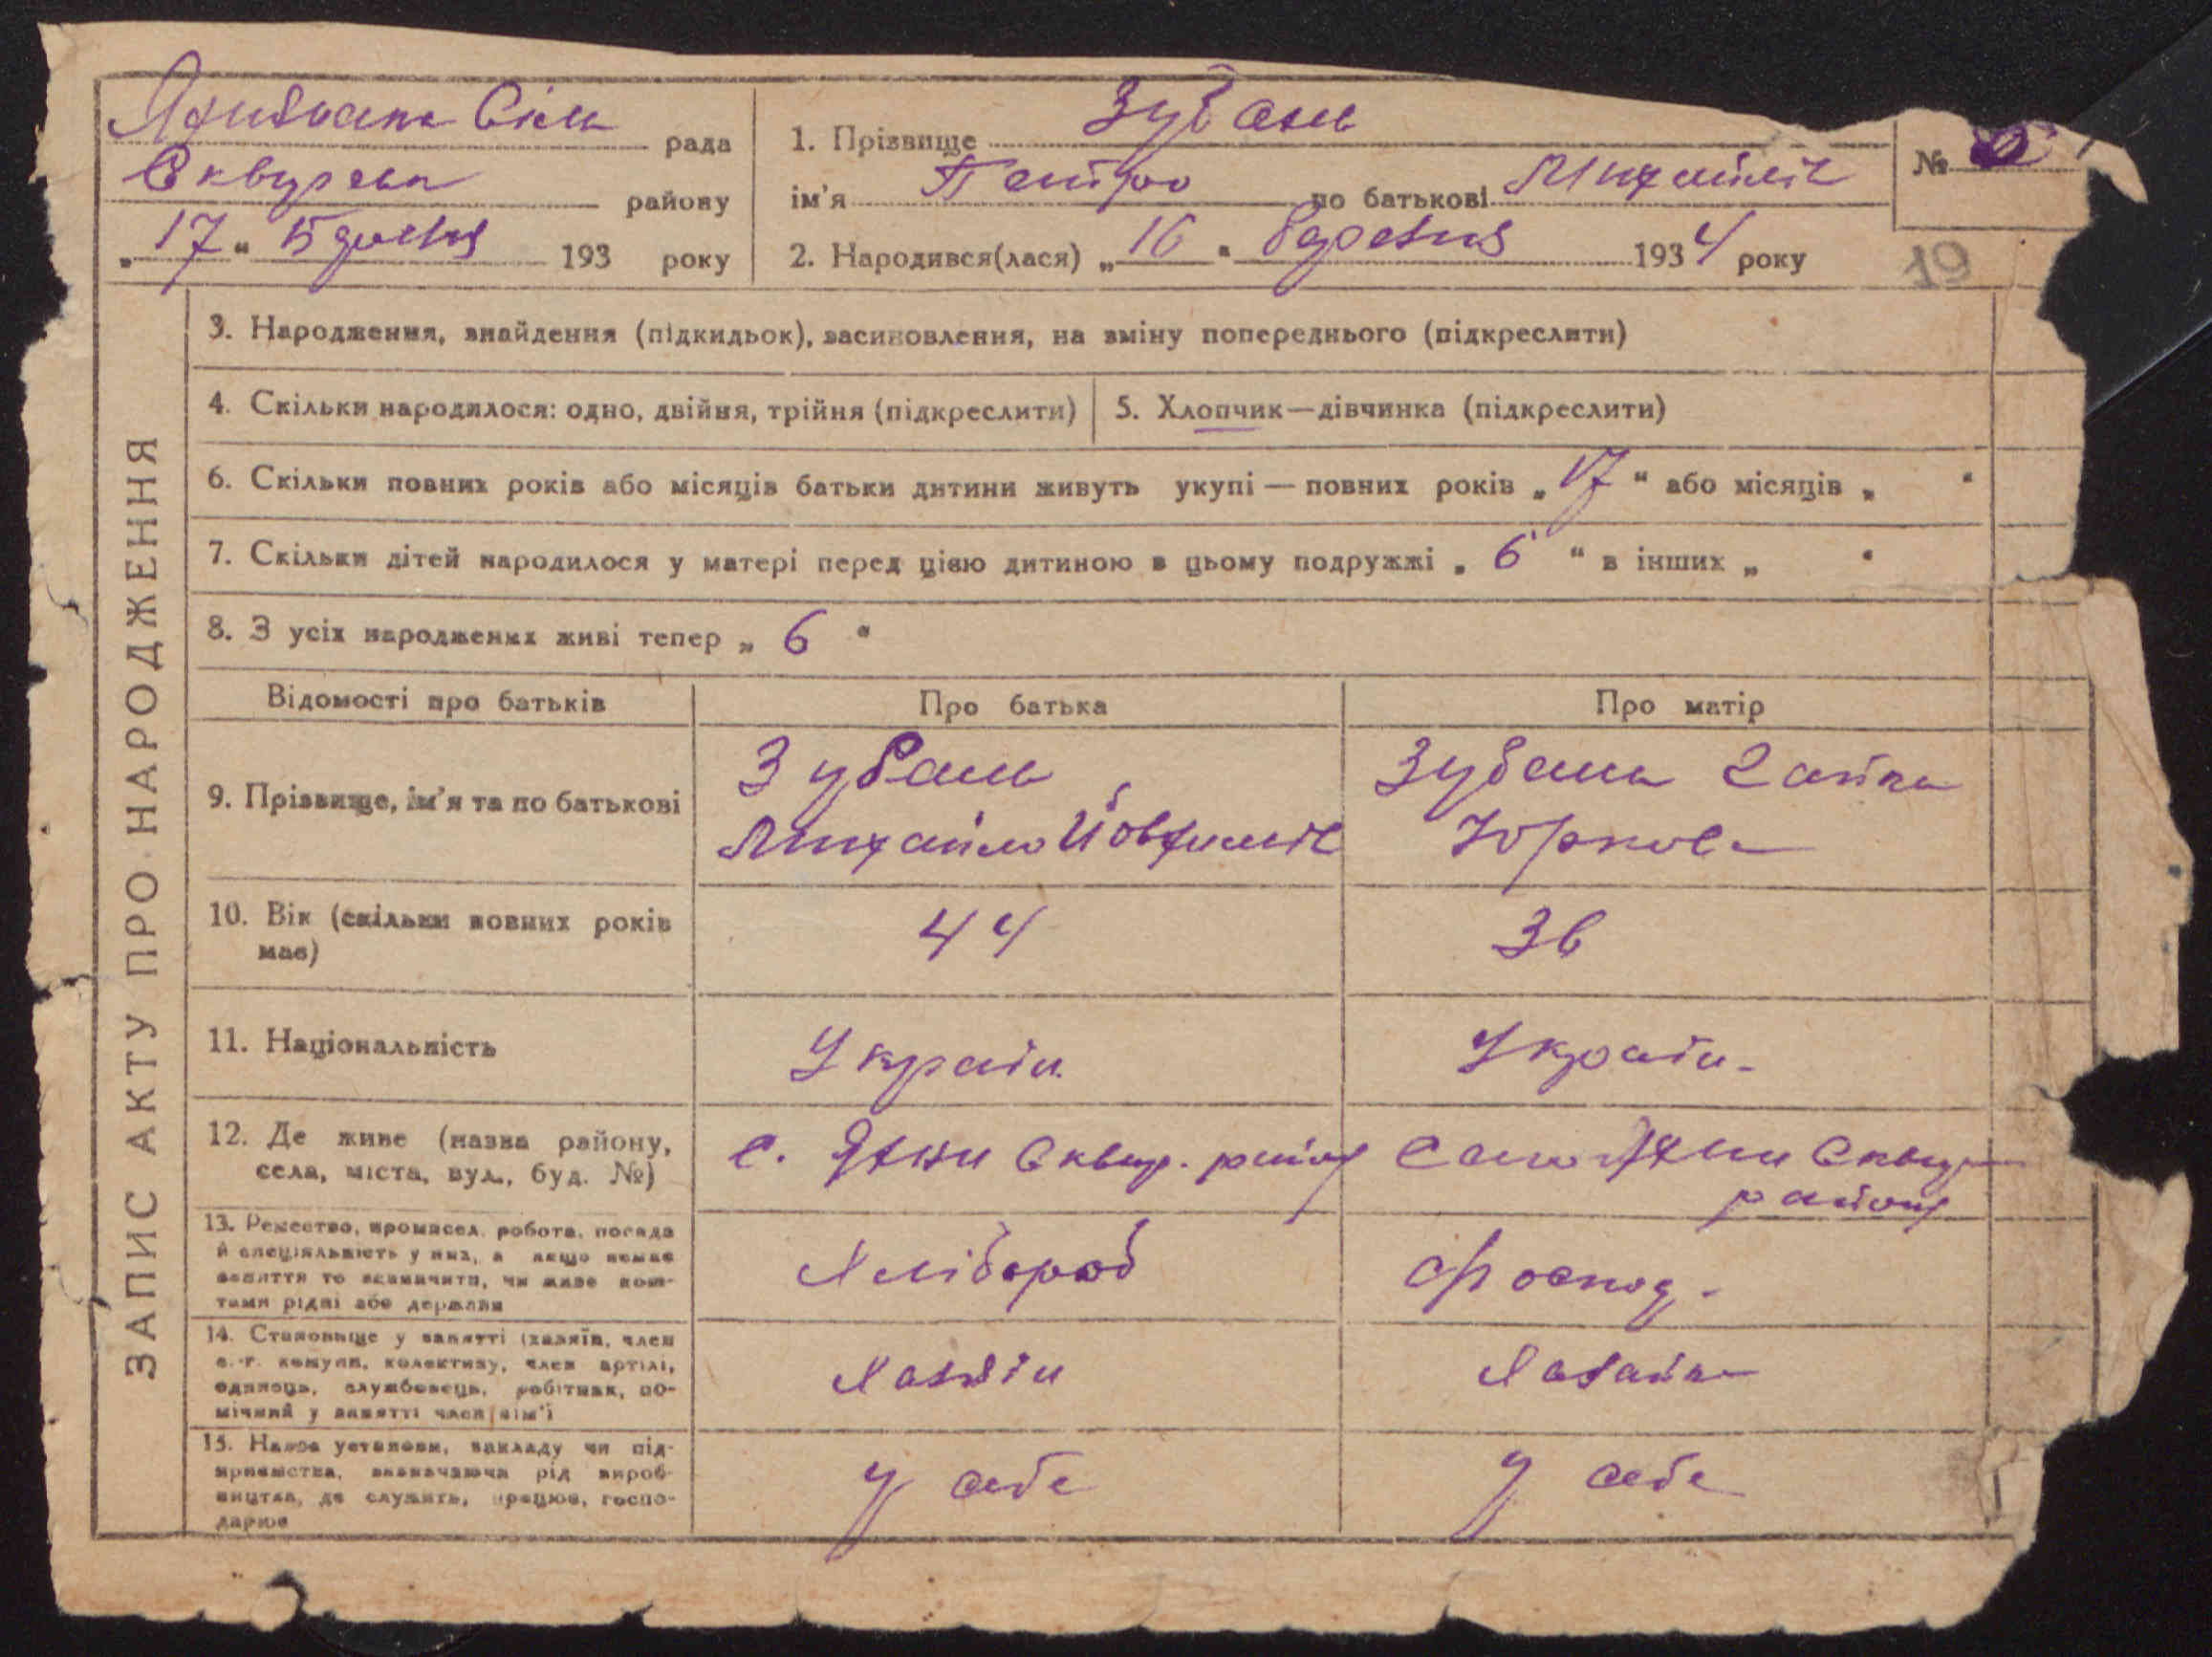 Сіль рада
Сквирськ району
„17“ Березня 193 року
1. Прізвище Зубань
ім'я Петро по батькові Михайлів
2. Народився(лася) „16“ березня 1934 року
№
19
ЗАПИС АКТУ ПРО НАРОДЖЕННЯ
3. Народження, знайдення (підкидьок), засиновлення, на зміну попереднього (підкреслити)
4. Скільки народилося: одно, двійня, трійня (підкреслити)
5. Хлопчик—дівчинка (підкреслити)
6. Скільки повних років або місяців батьки дитини живуть укупі — повних років „17“ або місяців „ “
7. Скільки дітей народилося у матері перед цією дитиною в цьому подружжі „6“ в інших „ “
8. З усіх народжених живі тепер „6“
Відомості про батьків
Про батька
Про матір
9. Прізвище, ім'я та по батькові
Зубань
Михайло Йовхимів
Зубань
Юркова
10. Вік (скільки повних років
має)
44
36
11. Національність
Україн.
Україн.
12. Де живе (назва району,
села, міста, вул., буд. №)
с. Сквир. райну
Село Сквир
району
13. Ремество, промисел, робота, посада
й спеціяльність у них, а якщо немає
заняття то зазначити, чи живе кош-
тами рідні або держави
Хлібороб
Господ.
14. Становище у занятті (хазяїн, член
с.-г. комуни, колективу, член артілі,
одинець, службовець, робітник, по-
мічний у занятті член сім'ї
Хазяїн
Хазайка
15. Назва установи, закладу чи під-
приємства, зазначаюча рід вироб-
ництва, де служить, працює, госпо-
дарює
у себе
у себе